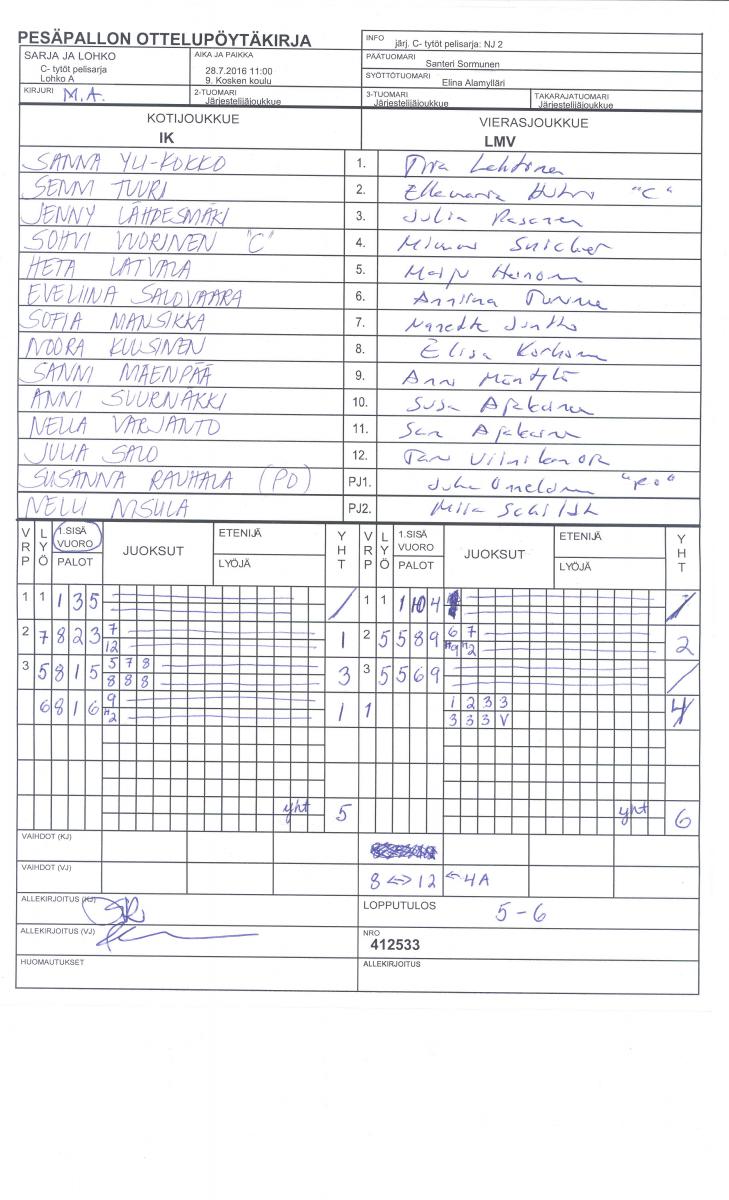 PESÄPALLON OTTELUPÖYTÄKIRJA
INFO järj. C- tytöt pelisarja: NJ 2
SARJA JA LOHKO
C- tytöt pelisarja
Lohko A
AIKA JA PAIKKA
28.7.2016 11:00
9. Kosken koulu
PÄÄTUOMARI
Santeri Sormunen
SYÖTTÖTUOMARI
Elina Alamylläri
KIRJURI M.A.
2-TUOMARI
Järjestelijäjoukkue
3-TUOMARI
Järjestelijäjoukkue
TAKARAJATUOMARI
Järjestelijäjoukkue
KOTIJOUKKUE
IK
VIERASJOUKKUE
LMV
SANNA YLI-KOKKO 1.
SENNI TUURI 2. "C"
JENNY LÄHDESMÄKI 3. Julia Pasanen
SOHVI VUORINEN "C" 4.
HETA LATVALA 5.
EVELIINA SALOVAARA 6. Anniina
SOFIA MANSIKKA 7.
NOORA KUUSINEN 8. Elisa Korhonen
SANNI MÄENPÄÄ 9. Anni Mäntylä
ANNI SUURNÄKKI 10. Susa Ajakainen
NELLA VARJANTO 11. Ajakainen
JULIA SALO 12.
SUSANNA RAUHALA (PO) PJ1. "PO"
NELLI NISULA PJ2.
VRP LYÖ 1.SISÄ VUORO PALOT JUOKSUT ETENIJÄ LYÖJÄ YHT VRP LYÖ 1.SISÄ VUORO PALOT JUOKSUT ETENIJÄ LYÖJÄ YHT
1 1 1 3 5 / 1 1 1 10 4 /
2 7 8 2 3 7 12 1 2 5 5 8 9 6 7 2
3 5 8 1 5 5 7 8 8 8 8 3 3 5 5 6 9 /
6 8 1 6 9 1 1 1 2 3 3 3 3 3 V 4
yht 5 yht 6
VAIHDOT (KJ)
VAIHDOT (VJ) 8 <-> 12 ← 4A
ALLEKIRJOITUS (KJ)
LOPPUTULOS 5-6
ALLEKIRJOITUS (VJ)
NRO
412533
HUOMAUTUKSET
ALLEKIRJOITUS